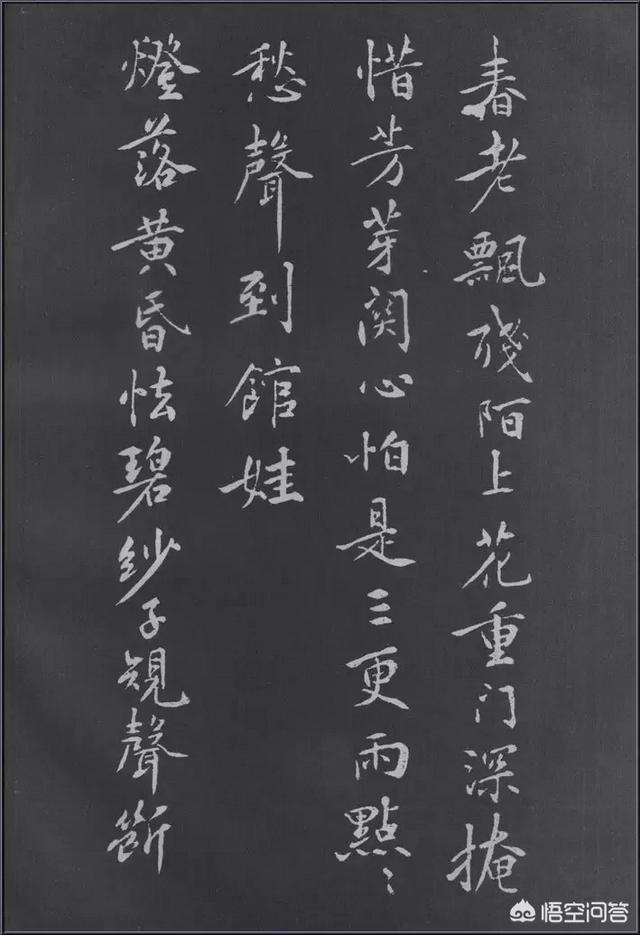 春老飄殘陌上花重门深掩
惜芳芽関心怕是三更雨點〻
愁聲到館娃
燈落黄昏怯碧紗子規聲斷
悟空问答